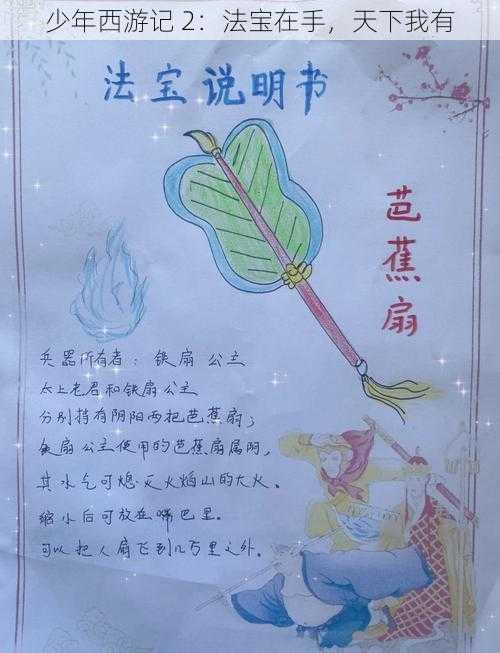 少年西游记 2：法宝在手，天下我有
法宝说明书
芭蕉扇
兵器所有者：铁扇公主
太上老君和铁扇公主
分别持有阴阳两把芭蕉扇；
铁扇公主使用的芭蕉扇属阴，
其水气可熄灭火焰山的大火。
缩小后可放在嘴巴里。
可以把人扇飞到几万里之外。